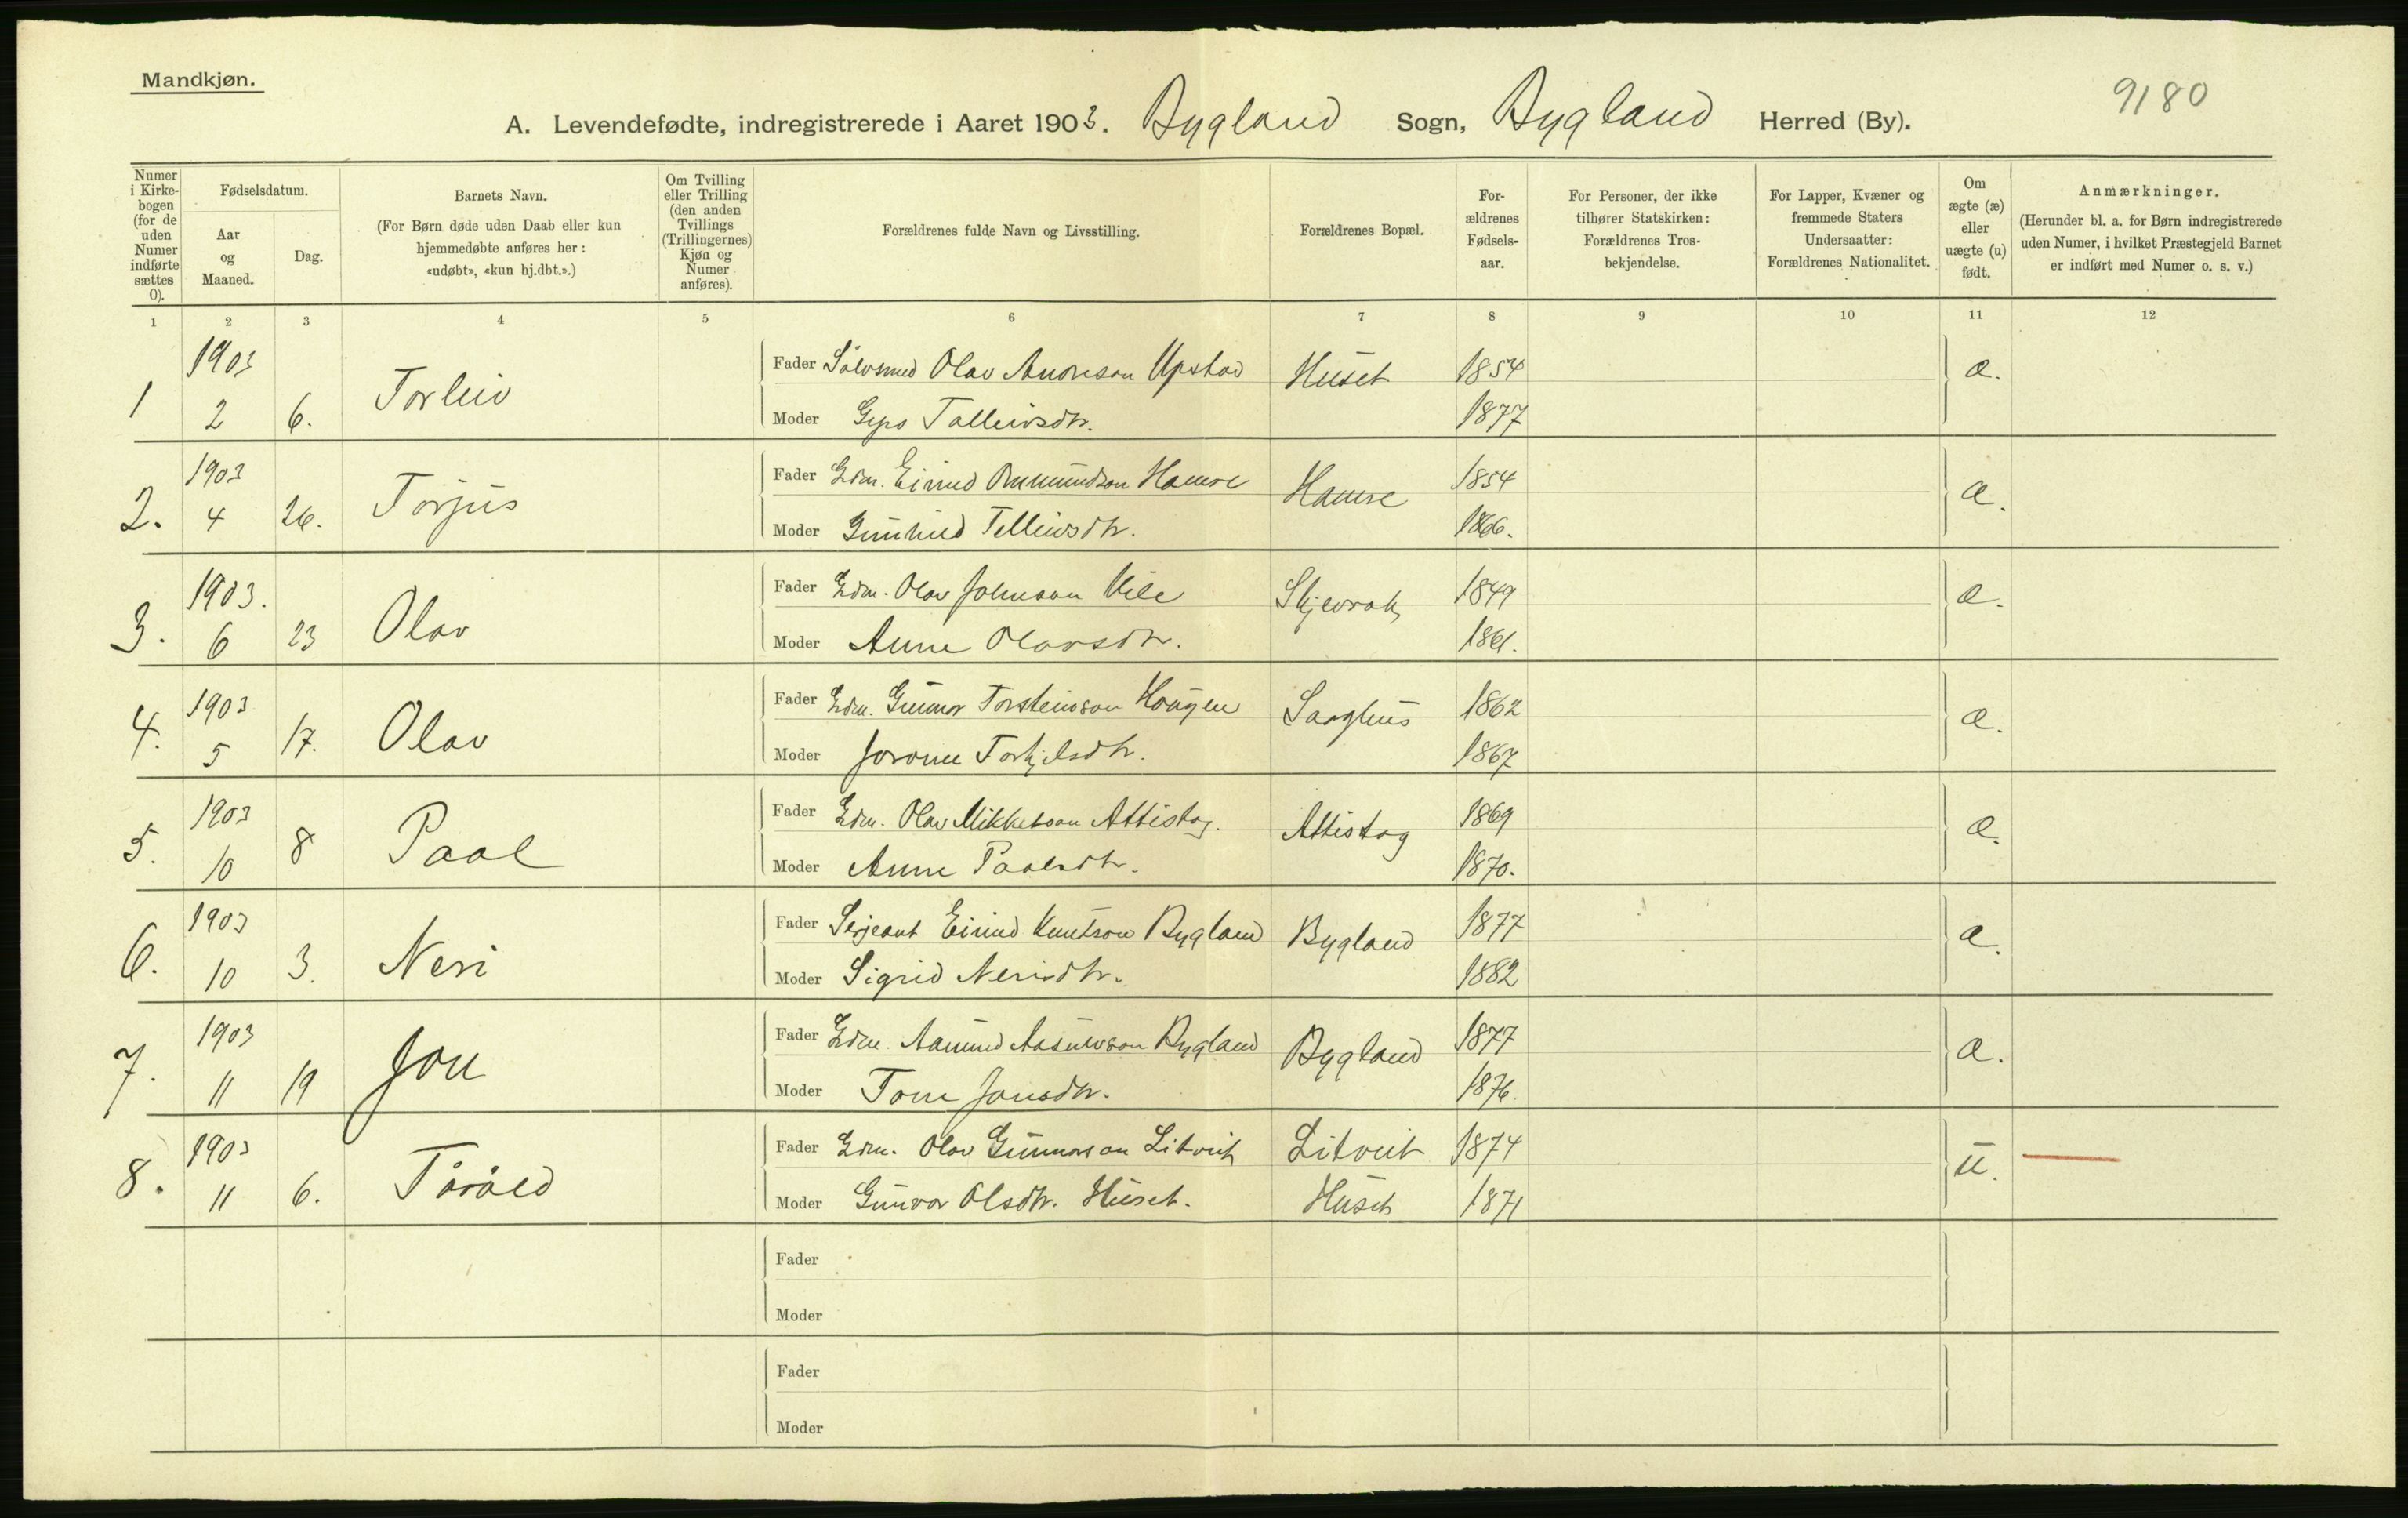 Mandkjøn.
9180
A. Levendefødte, indregistrerede i Aaret 1903. Bygland Sogn, Bygland Herred (By).
Numer i Kirkebogen (for de uden Numer indførte sættes 0).
Fødselsdatum.
Aar og Maaned.
Dag.
Barnets Navn.
(For Børn døde uden Daab eller kun hjemmedøbte anføres her: «udøbt», «kun hj.dbt.».)
Om Tvilling eller Trilling (den anden Tvillings (Trillingernes) Kjøn og Numer anføres).
Forældrenes fulde Navn og Livsstilling.
Forældrenes Bopæl.
Forældrenes Fødselsaar.
For Personer, der ikke tilhører Statskirken: Forældrenes Trosbekjendelse.
For Lapper, Kvæner og fremmede Staters Undersaatter: Forældrenes Nationalitet.
Om ægte (æ) eller uægte (u) født.
Anmærkninger.
(Herunder bl. a. for Børn indregistrerede uden Numer, i hvilket Præstegjeld Barnet er indført med Numer o. s. v.)
1 2 3 4 5 6 7 8 9 10 11 12
1 1903 2 6. Torleiv
Fader Sølvsmed Olav Andresson Upstad Huset 1854 æ.
Moder Gyro Talleivsdtr. 1877
2. 1903 4 26. Torjus
Fader Gdm. Eivind Ommundson Hamre Hamre 1854 æ.
Moder Gunhild Tellevsdtr. 1866.
3. 1903. 6 23 Olav
Fader Gdm. Olav Johnson Kile 1849 æ.
Moder Anne Olavsdtr. 1861.
4. 1903 5 17. Olav
Fader Gdm. Gunnar Torsteinson Haugen 1862 æ.
Moder Torkjelsdtr. 1867
5. 1903 10 8 Paal
Fader Gdm. Olav Mikkelson Attistog. Attistog 1869 æ.
Moder Anne Paalsdtr. 1870.
6. 1903 10 3. Neri
Fader Serjeant Eivind Knutson Bygland Bygland 1877 æ.
Moder Sigrid Nerisdtr. 1882
7. 1903 11 19 Jon
Fader Gdm. Aamund Bygland Bygland 1877 æ.
Moder Tone Jonsdtr. 1876.
8. 1903 11 6. Tåråld
Fader Gdm. Olav Gunnarson Litveit Litveit 1874 u.
Moder Gunvor Olsdtr. Huset. Huset 1871
Fader
Moder
Fader
Moder